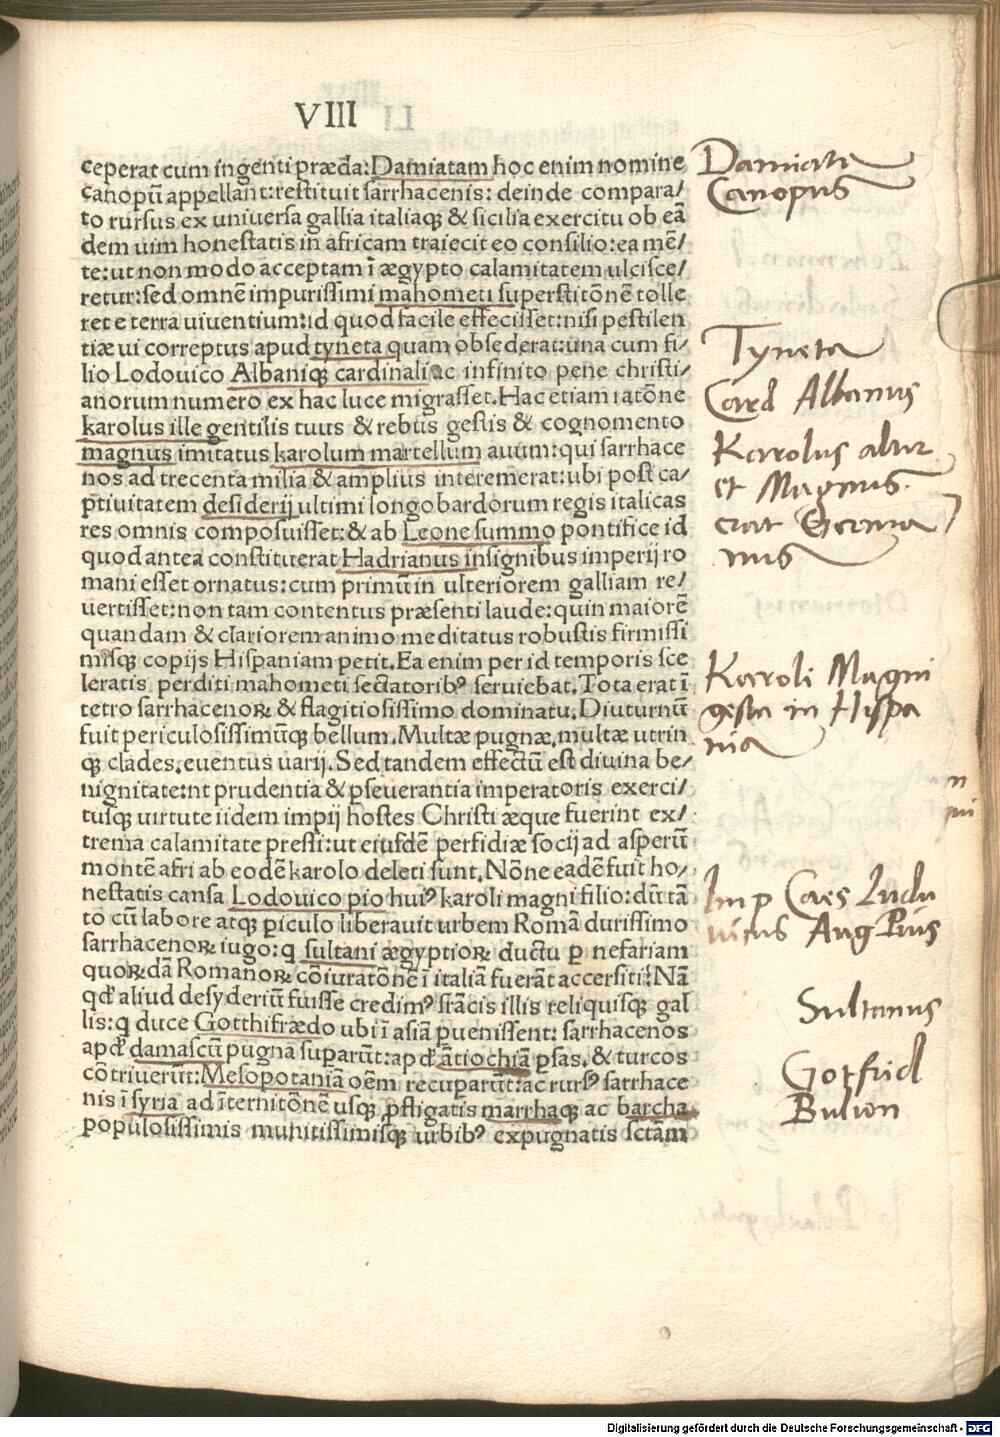 VIII
ceperat cum ingenti præda: Damiatam hoc enim nomine
canopū appellant: restituit sarrhacenis: deinde compara/
to rursus ex uniuersa gallia italiaq; & sicilia exercitu ob eā
dem uim honestatis in africam traiecit eo consilio: ea mē/
te: ut non modo acceptam ī ægypto calamitatem ulcisce/
retur: sed omnē impurissimi mahometi superstitōnē tolle
ret e terra uiuentium: id quod facile effecisset: nisi pestilen
tiæ ui correptus apud tyneta quam obsederat: una cum fi/
lio Lodouico Albaniq; cardinali ac infinito pene christi/
anorum numero ex hac luce migrasset. Hac etiam ratōne
karolus ille gentilis tuus & rebus gestis & cognomento
magnus imitatus karolum martellum auum: qui sarrhace
nos ad trecenta milia & amplius interemerat: ubi post ca/
ptiuitatem desiderij ultimi longobardorum regis italicas
res omnis composuisset: & ab Leone summo pontifice id
quod antea constituerat Hadrianus insignibus imperij ro
mani esset ornatus: cum primū in ulteriorem galliam re/
uertisset: non tam contentus præsenti laude: quin maiorē
quandam & clariorem animo meditatus robustis firmissi
misq; copijs Hispaniam petit. Ea enim per id temporis sce
leratis perditi mahometi sectatoribꝰ seruiebat. Tota erat ī
tetro sarrhacenoꝝ & flagitiosissimo dominatu. Diuturnū
fuit periculosissimūq; bellum. Multæ pugnæ, multæ utrin
q; clades, euentus uarij. Sed tandem effectū est diuina be/
nignitate: nt prudentia & pseuerantia imperatoris exerci/
tusq; uirtute iidem impij hostes Christi æque fuerint ex/
trema calamitate pressi: ut eiusdē perfidiæ socij ad asperū
montē afri ab eodē karolo deleti sunt. Nōne eadē fuit ho/
nestatis cansa Lodouico pio huiꝰ karoli magni filio: dū tā
to cū labore atq; ꝑiculo liberauit urbem Romā durissimo
sarrhacenoꝝ iugo: q sultani ægyptioꝝ ductu ꝑ nefariam
quoꝝdā Romanoꝝ cōiuratōnē ī italiā fuerāt accersiti? Nā
qd aliud desyderiū fuisse credimꝰ frācis illis reliquisq; gal
lis: q duce Gotthifrædo ubi ī asiā ꝑuenissent: sarrhacenos
apd damascū pugna suꝑarūt: apd ātiochiā ꝑsas, & turcos
cōtriuerūt: Mesopotaniā oēm recuꝑarūt: ac rursꝰ sarrhace
nis ī syria ad īternitōnē usq; ꝓfligatis marrhaq; ac barcha
populosissimis munitissimisq; urbibꝰ expugnatis sctām
Damiata
Canopus
Tyneta
Card Albanus
Karolus alter
et Magnus
erat Germa
nus
Karoli Magni
gesta in Hispa
nia
Imp Caes Ludo
uicus Aug Pius
Sultanus
Gotfrid
Bulion
Digitalisierung gefördert durch die Deutsche Forschungsgemeinschaft - DFG